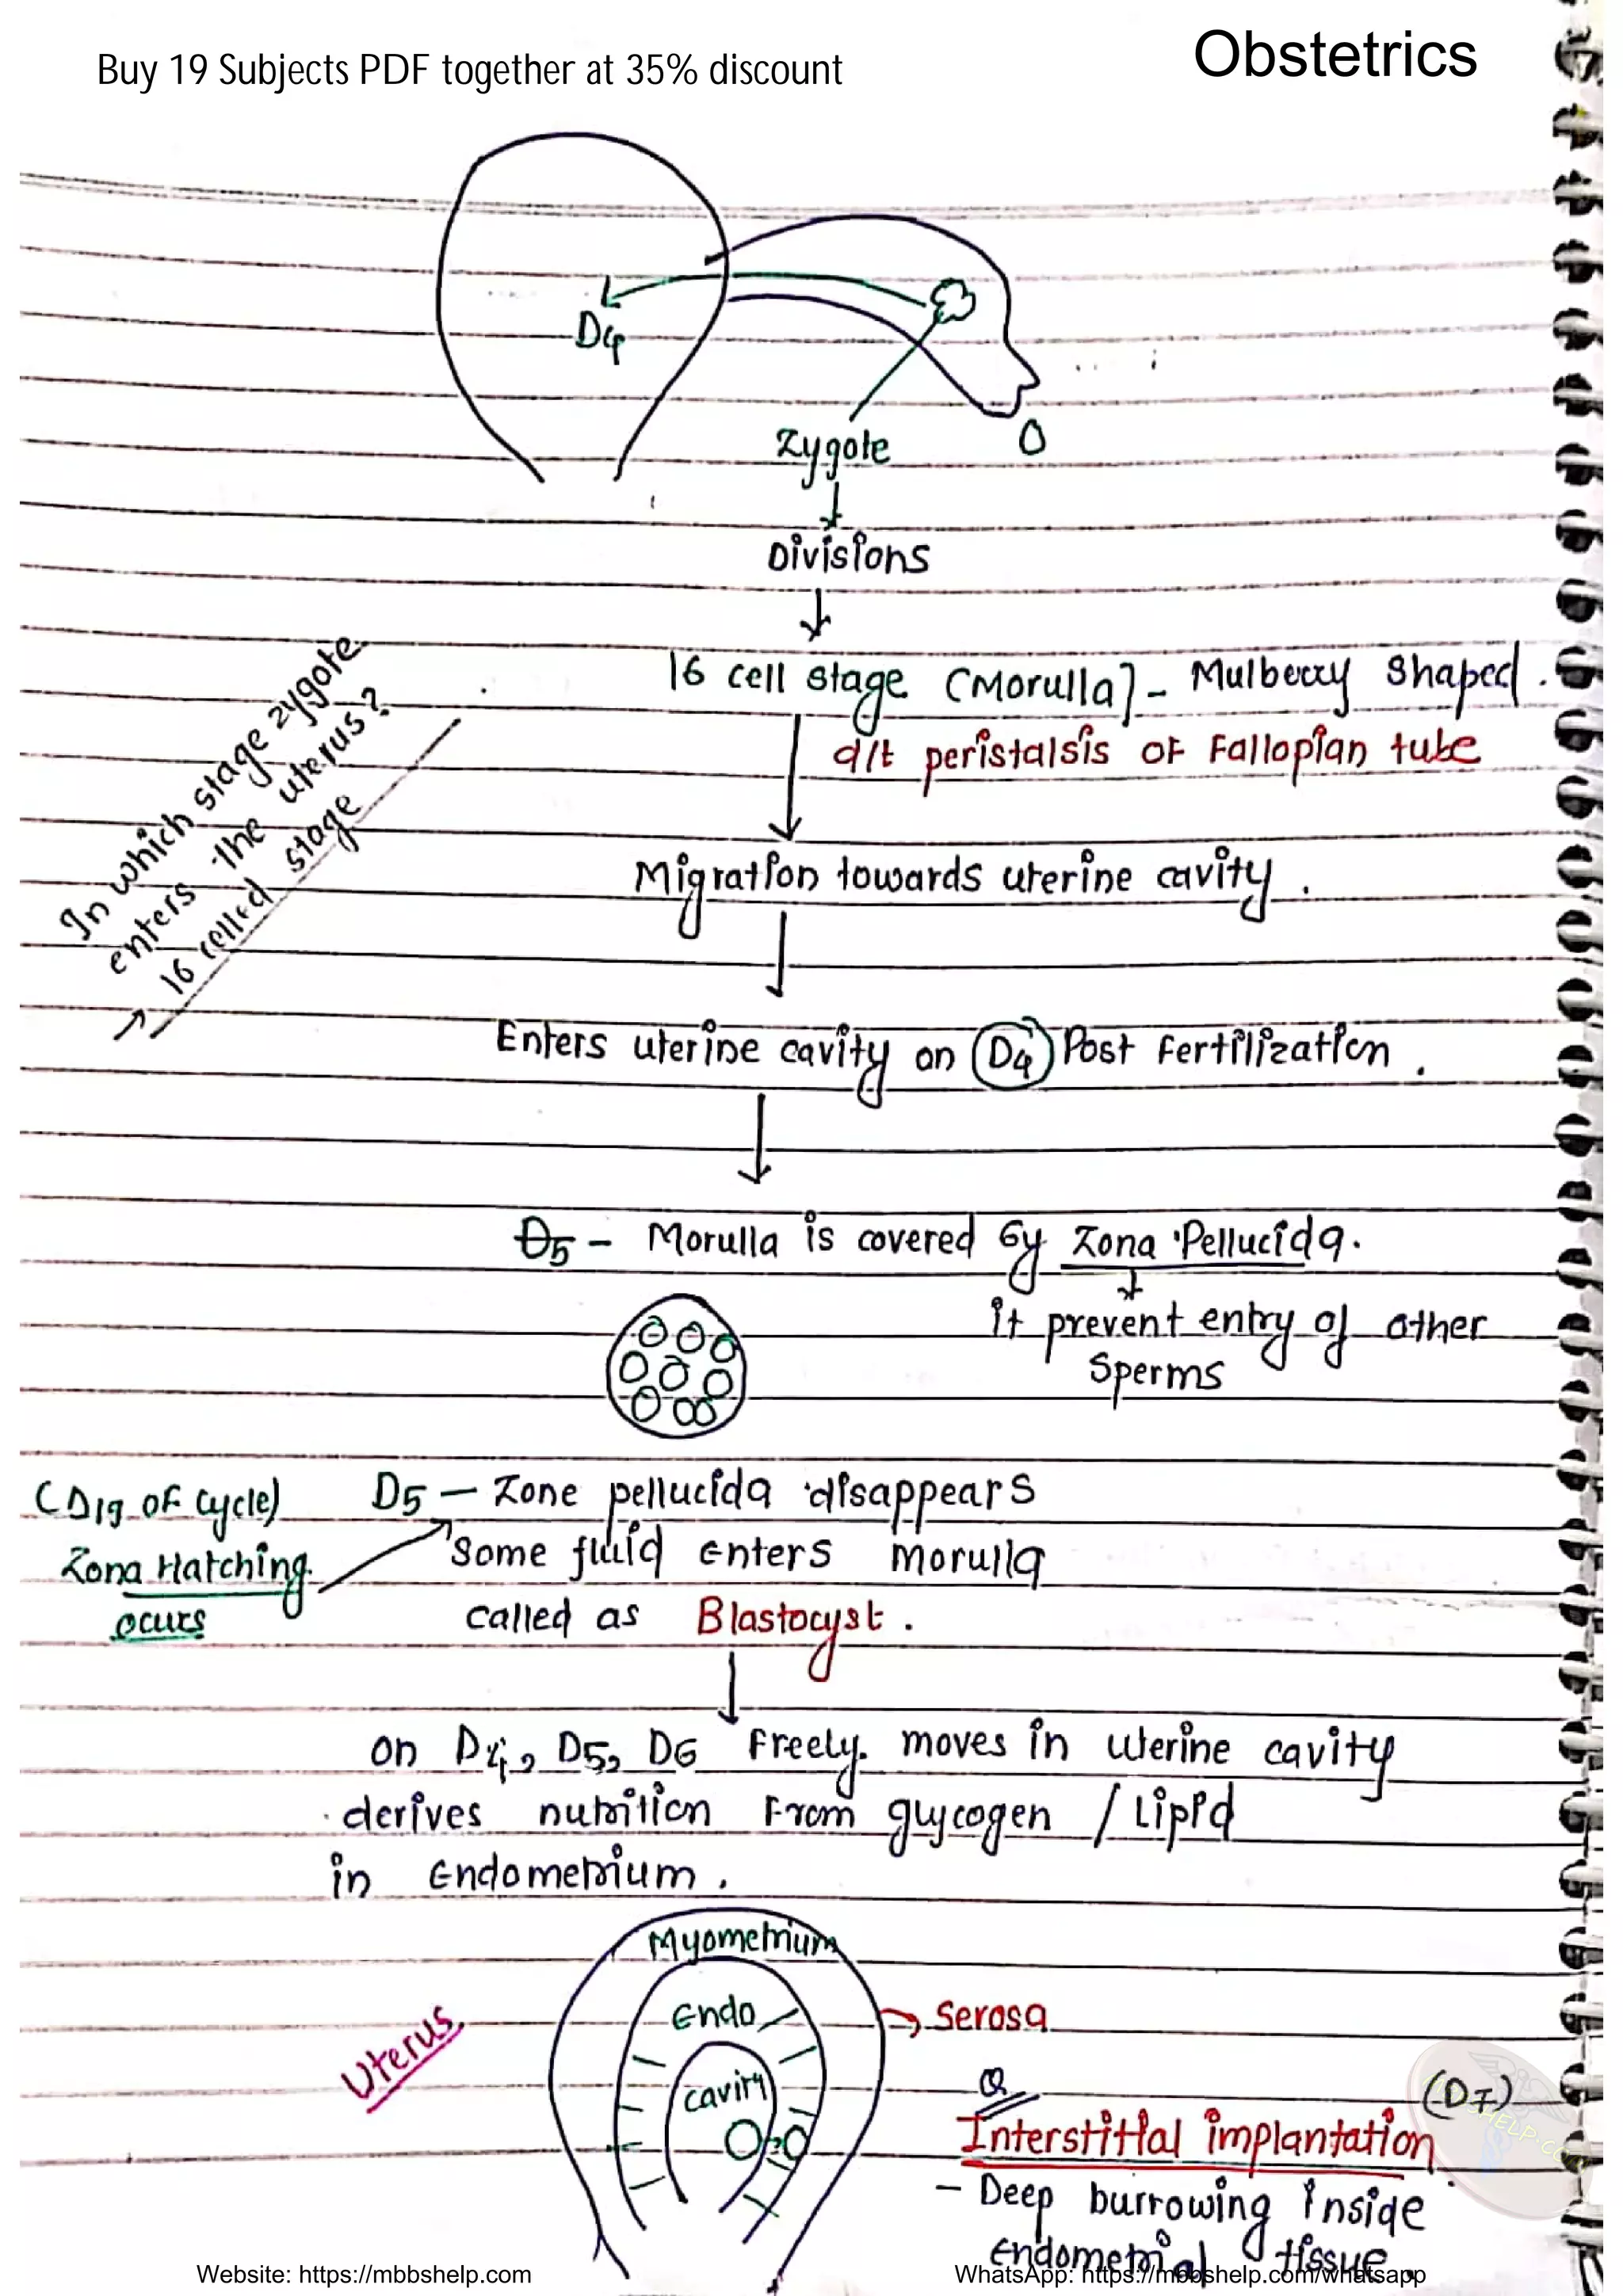 Buy 19 Subjects PDF together at 35% discount
Obstetrics
D4
Zygote
Divisions
16 cell stage (Morulla] - Mulberry shaped.
d/t peristalsis of Fallopian tube
In which stage zygote
enters the uterus?
→ 16 celled stage
Migration towards uterine cavity.
Enters uterine cavity on D4 Post Fertilization.
D5 - Morulla is covered by Zona Pellucida.
it prevent entry of other
sperms
(D19 of cycle)
Zona Hatching
ocurs
D5 - Zone pellucida disappears
Some fluid enters morulla
called as Blastocyst.
on D4, D5, D6 Freely moves in uterine cavity
derives nutrition From glycogen / Lipid
in Endometrium.
Uterus
Myometrium
Endo
cavity
Serosa
Q
(D7)
Interstitial implantation
- Deep burrowing inside
endometrial tissue.
Website: https://mbbshelp.com
WhatsApp: https://mbbshelp.com/whatsapp